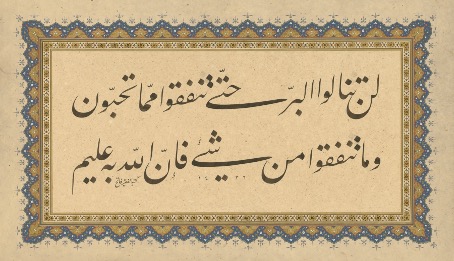 لن تنالوا البرّ حتّى تنفقوا ممّا تحبّون
وما تنفقوا من شیئ فانّ الله به علیم